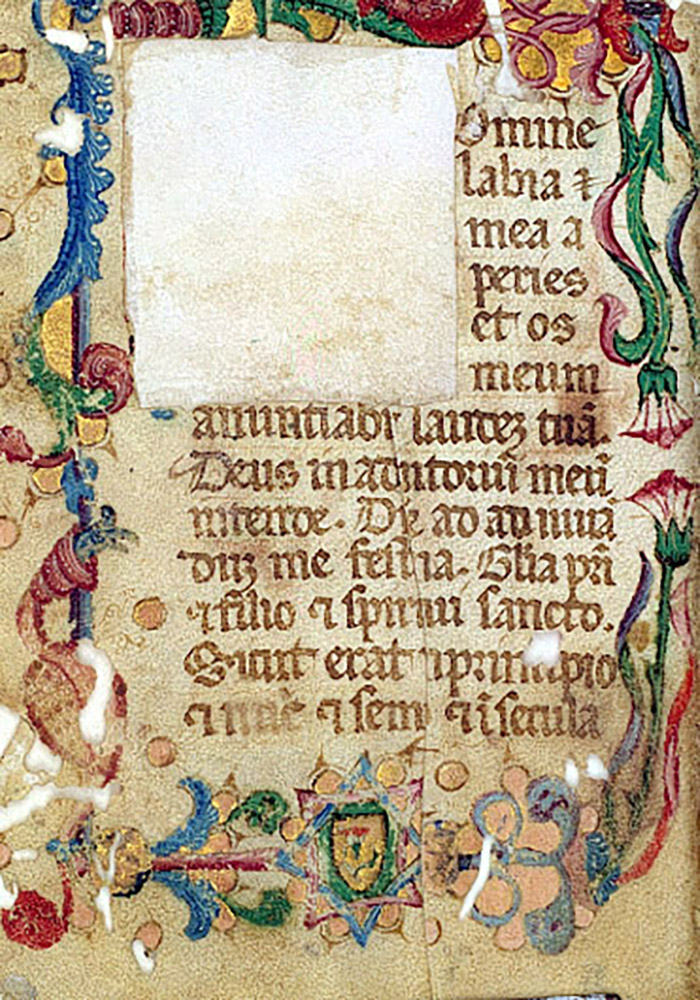 omine
labia ⁊
mea a
peries
et os
meum
anuntiabit laudez tuā.
Deus in adiutoriū meū
intende. Dñe ad adiuuā
duz me festina. Glia pri
⁊ filio ⁊ spiritui sancto.
Sicut erat i principio
⁊ nūc ⁊ semp ⁊ ī secula